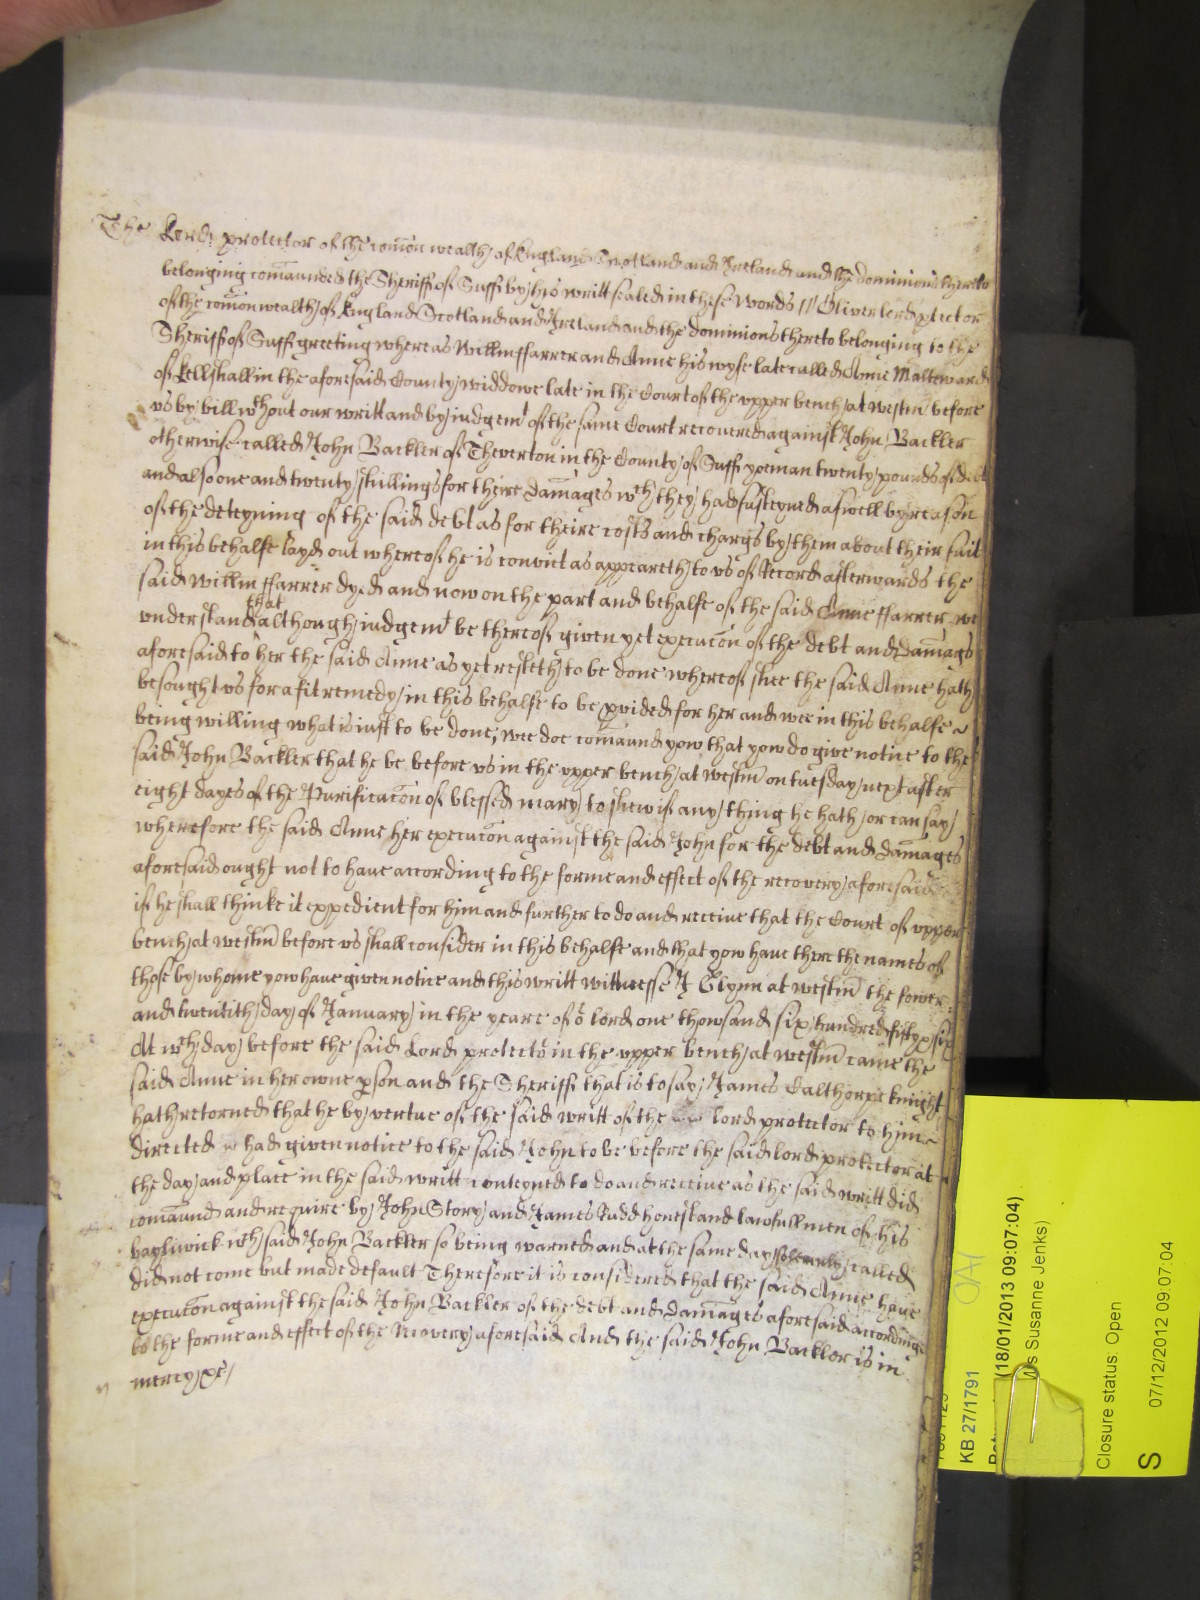 The Lord protector of the comōn wealth of England Scotland and Ireland and the dominions thereto
belonging comaunded the Sheriff of Suff by his writt sealed in these words // Oliver lord ptector
of the comōn wealth of England Scotland and Ireland and the dominions thereto belonging to the
Sheriff of Suff greeting whereas Willm ffarrer and Anne his wyfe late called Anne Malteward
of Kellshall in the aforesaid County widdowe late in the Court of the vpper bench at westm̄ before
vs by bill wthout our writt and by iudgemt of the same Court recouered against John Backler
otherwise called John Backler of Theverton in the County of Suff yeoman twenty pounds of debt
and also one and twenty shillings for theire dam̄ages wch they had susteyned aswell by reason
of the deteyning of the said debt as for theire costs and chargs by them about their suit
in this behalfe layd out whereof he is convict as appeareth to vs of Record afterwards the
said Willm ffarrer dyed and now on the part and behalfe of the said Anne ffarrer we
vnderstand that although iudgemt be thereof given yet execucōn of the debt and dam̄ags
aforesaid to her the said Anne as yet resteth to be done whereof shee the said Anne hath
besought vs for a fit remedy in this behalfe to be pvided for her and wee in this behalfe
being willing what is iust to be done, wee doe comāund yow that yow do give notice to the
said John Backler that he be before vs in the vpper bench at westm̄ on tuesday next after
eight dayes of the Purificacōn of blessed mary to shew if any thing he hath or can say
wherefore the said Anne her execucōn against the said John for the debt and dam̄ages
aforesaid ought not to haue according to the forme and effect of the recovery aforesaid
if he shall thinke it expedient for him and further to do and receiue that the Court of vpper
bench at westm̄ before vs shall consider in this behalfe and that yow haue there the names of
those by whome yow haue given notice and this writt wittnesse J Glynn at westm̄ the fower
and twentith day of January in the yeare of or lord one thowsand six hundred fifty six
At wch day before the said Lord protector in the vpper bench at westm̄ came the
said Anne in her owne pson and the Sheriff that is to say James Calthorpe knight
hath retorned that he by vertue of the said writt of the lord protector to him
directed had given notice to the said John to be before the said lord protector at
the day and place in the said writt conteyned to do and receiue as the said writt did
comāund and require by John Story and James Rudd honest and lawfull men of his
bayliwick wch said John Backler so being warned and at the same day solemnly called
did not come but made default Therefore it is considered that the said Anne haue
execucōn against the said John Backler of the debt and dam̄ages aforesaid accordinge
to the forme and effect of the Recovery aforesaid And the said John Backler is in
mercy &c /
KB 27/1791
(18/01/2013 09:07:04)
Ms Susanne Jenks)
Closure status: Open
S 07/12/2012 09:07:04